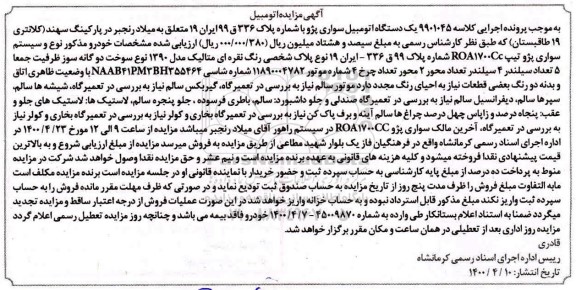 آگهی مزایده اتومبیل
به موجب پرونده اجرایی کلاسه 9901045 یک دستگاه اتومبیل سواری پژو با شماره پلاک 336 ق 99 ایران 19 متعلق به میلاد رنجبر در پارکینگ سهند (کلانتری
19 طاقبستان) که طبق نظر کارشناس رسمی به مبلغ سیصد و هشتاد میلیون ریال (000/000/380 ریال) ارزیابی شده مشخصات خودرو مذکور نوع و سیستم
سواری پژو تیپ ROA1700Cc شماره پلاک 99 ق 336 - ایران 19 نوع پلاک شخصی رنگ نقره ای متالیک مدل 1390 نوع سوخت دو گانه سوز ظرفیت جمعا
5 تعداد سیلندر 4 سیلندر تعداد محور 2 محور تعداد چرخ 4 چرخ موتور 11890004782 شماره شاسی NAAB41PM3BH355464 با وضعیت ظاهری اتاق
و بدنه دو رنگ بعضی قطعات نیاز به احیای رنگ مجدد دارد موتور سالم نیاز به بررسی در تعمیرگاه، گیربکس سالم نیاز به بررسی در تعمیرگاه، شیشه ها سالم،
سپرها سالم، دیفرانسیل سالم نیاز به بررسی در تعمیرگاه صندلی و جلو داشبورد: سالم، باطری فرسوده، جلو پنجره سالم، لاستیک ها: لاستیک های جلو و
عقب: پنجاه درصد و زاپاس چهل درصد چراغ ها سالم آینه و برف پاک کن نیاز به بررسی در تعمیرگاه بخاری و کولر نیاز به بررسی در تعمیرگاه بخاری و کولر نیاز
به بررسی در تعمیرگاه، آخرین مالک سواری پژو ROA1700CC در سیستم راهور آقای میلاد رنجبر میباشد مزایده از ساعت 9 الی 12 مورخ 1400/4/23 در
اداره اجرای اسناد رسمی کرمانشاه واقع در فرهنگیان فاز یک بلوار شهید مطاعی از طریق مزایده به فروش میرسد مزایده از مبلغ ارزیابی شروع و به بالاترین
قیمت پیشنهادی نقدا فروخته میشود و کلیه هزینه های قانونی به عهده برنده مزایده است ونیم عشر و حق مزایده نقدا وصول خواهد شد شرکت در مزایده
منوط به پرداخت ده درصد از مبلغ پایه کارشناسی به حساب سپرده ثبت و حضور خریدار یا نماینده قانونی او در جلسه مزایده است برنده مزایده مکلف است
مابه التفاوت مبلغ فروش را ظرف مدت پنج روز از تاریخ مزایده به حساب صندوق ثبت تودیع نماید و در صورتی که ظرف مهلت مقرر مانده فروش را به حساب
سپرده ثبت واریز نکند مبلغ مذکور قابل استرداد نبوده و به حساب خزانه واریز خواهد شد در این صورت عملیات فروش از درجه اعتبار ساقط و مزایده تجدید
میگردد ضمنا به استناد اعلام بستانکار طی وارده به شماره 4500987-1400/4/7 خودرو فاقد بیمه می باشد و چنانچه روز مزایده تعطیل رسمی اعلام گردد
مزایده روز اداری بعد از تعطیلی در همان ساعت و مکان مقرر برگزار خواهد شد.
قادری
رییس اداره اجرای اسناد رسمی کرمانشاه
تاریخ انتشار: 10 / 4 / 1400